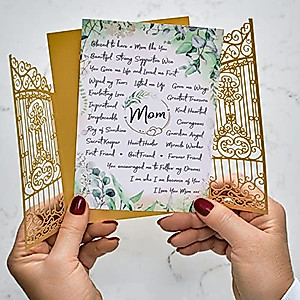 Blessed to have a Mom like You
Beautiful Strong Supportive Wise
You Gave me Life and Loved me First
Wiped my Tears Lifted me Up Gave me Wings
Everlasting Love Greatest Treasure
Inspirational Kind Hearted
Irreplaceable Mom Courageous
Ray of Sunshine Guardian Angel
Secret Keeper Heart Healer Miracle Worker
First Friend Best Friend Forever Friend
You encouraged me to Follow my Dreams
I am who I am because of You
I Love You Mom